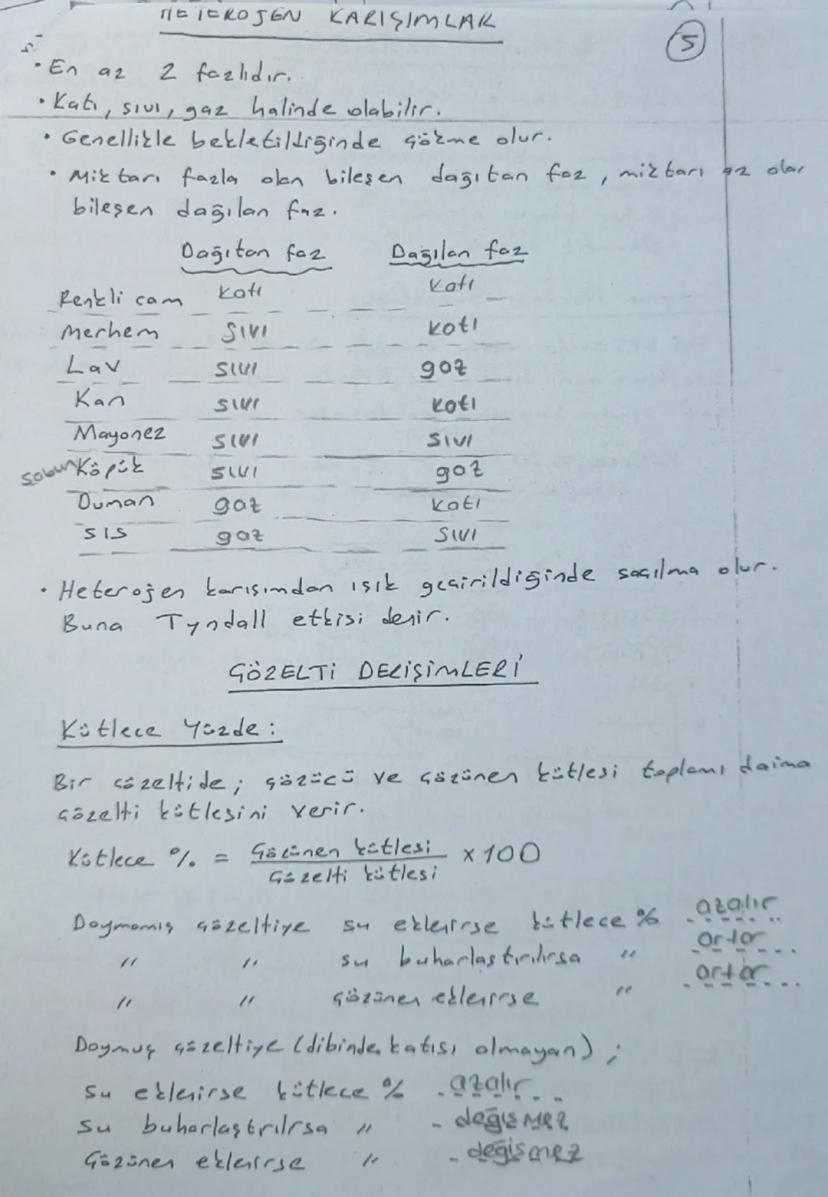 HETEROJEN KARIŞIMLAR
5
• En az 2 fazlıdır.
• Katı, sıvı, gaz halinde olabilir.
• Genellikle bekletildiğinde çökme olur.
• Miktarı fazla olan bileşen dağıtan faz, miktarı az olan
bileşen dağılan faz.
Dağıtan faz Dağılan faz
Renkli cam katı katı
Merhem sıvı katı
Lav sıvı gaz
Kan sıvı katı
Mayonez sıvı sıvı
sabun Köpük sıvı gaz
Duman gaz katı
sis gaz sıvı
• Heterojen karışımdan ışık geçirildiğinde saçılma olur.
Buna Tyndall etkisi denir.
ÇÖZELTİ DERİŞİMLERİ
Kütlece Yüzde:
Bir çözeltide; çözücü ve çözünen kütlesi toplamı daima
çözelti kütlesini verir.
Kütlece % = Çözünen kütlesi / Çözelti kütlesi x 100
Doymamış çözeltiye su eklenirse kütlece % azalır
" " su buharlaştırılırsa " artar
" " çözünen eklenirse " artar
Doymuş çözeltiye (dibinde katısı olmayan);
su eklenirse kütlece % azalır
su buharlaştırılırsa " değişmez
Çözünen eklenirse " değişmez